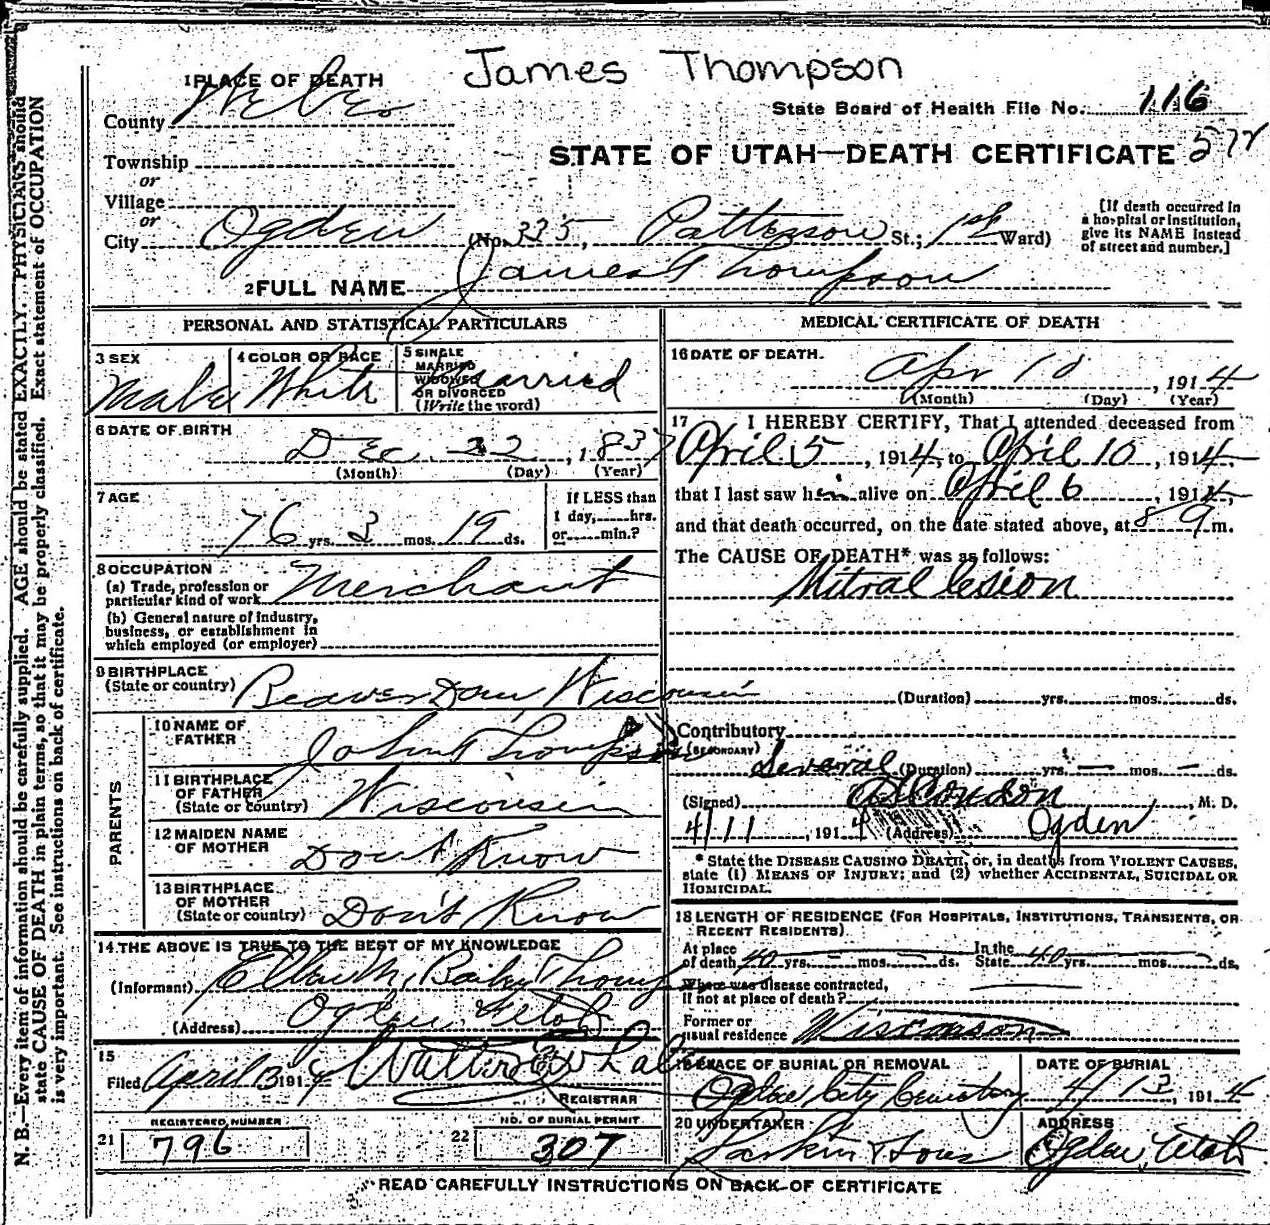 James Thompson
1 PLACE OF DEATH
State Board of Health File No. 116
County Weber
STATE OF UTAH—DEATH CERTIFICATE 572
Township
or
Village
or
City Ogden (No. 335, Patterson St.; 1st Ward)
[If death occurred in
a hospital or institution,
give its NAME instead
of street and number.]
2 FULL NAME James Thompson
PERSONAL AND STATISTICAL PARTICULARS
3 SEX
Male
4 COLOR OR RACE
White
5 SINGLE
MARRIED
WIDOWED
OR DIVORCED
(Write the word)
Married
6 DATE OF BIRTH
Dec. 22, 1837
(Month) (Day) (Year)
7 AGE
76 yrs. 3 mos. 19 ds.
If LESS than
1 day, hrs.
or min.?
8 OCCUPATION
(a) Trade, profession or
particular kind of work Merchant
(b) General nature of industry,
business, or establishment in
which employed (or employer)
9 BIRTHPLACE
(State or country) Beaver Dam Wisconsin
PARENTS
10 NAME OF
FATHER John Thompson
11 BIRTHPLACE
OF FATHER
(State or country) Wisconsin
12 MAIDEN NAME
OF MOTHER Don't Know
13 BIRTHPLACE
OF MOTHER
(State or country) Don't Know
14 THE ABOVE IS TRUE TO THE BEST OF MY KNOWLEDGE
(Informant) Bailey Thompson
(Address) Ogden Utah
15
Filed April 13 1914
REGISTRAR
21 REGISTERED NUMBER
796
22 NO. OF BURIAL PERMIT
307
MEDICAL CERTIFICATE OF DEATH
16 DATE OF DEATH.
Apr 10, 1914
(Month) (Day) (Year)
17 I HEREBY CERTIFY, That I attended deceased from
April 5, 1914, to April 10, 1914,
that I last saw him alive on April 6, 1914,
and that death occurred, on the date stated above, at 8 9 m.
The CAUSE OF DEATH* was as follows:
Mitral lesion
(Duration) yrs. mos. ds.
Contributory
(SECONDARY)
Several (Duration) yrs. — mos. — ds.
(Signed) Condon, M. D.
4/11, 1914 (Address) Ogden
* State the DISEASE CAUSING DEATH, or, in deaths from VIOLENT CAUSES,
state (1) MEANS OF INJURY; and (2) whether ACCIDENTAL, SUICIDAL OR
HOMICIDAL.
18 LENGTH OF RESIDENCE (FOR HOSPITALS, INSTITUTIONS, TRANSIENTS, OR
RECENT RESIDENTS)
At place
of death 40 yrs. — mos. — ds.
In the
State 40 yrs. mos. ds.
Where was disease contracted,
if not at place of death?
Former or
usual residence Wisconson
19 PLACE OF BURIAL OR REMOVAL
Ogden City Cemetery
DATE OF BURIAL
4/13, 1914
20 UNDERTAKER
Larkin & Sons
ADDRESS
Ogden, Utah
READ CAREFULLY INSTRUCTIONS ON BACK OF CERTIFICATE
N. B.—Every item of information should be carefully supplied. AGE should be stated EXACTLY. PHYSICIANS should
state CAUSE OF DEATH in plain terms, so that it may be properly classified. Exact statement of OCCUPATION
is very important. See instructions on back of certificate.